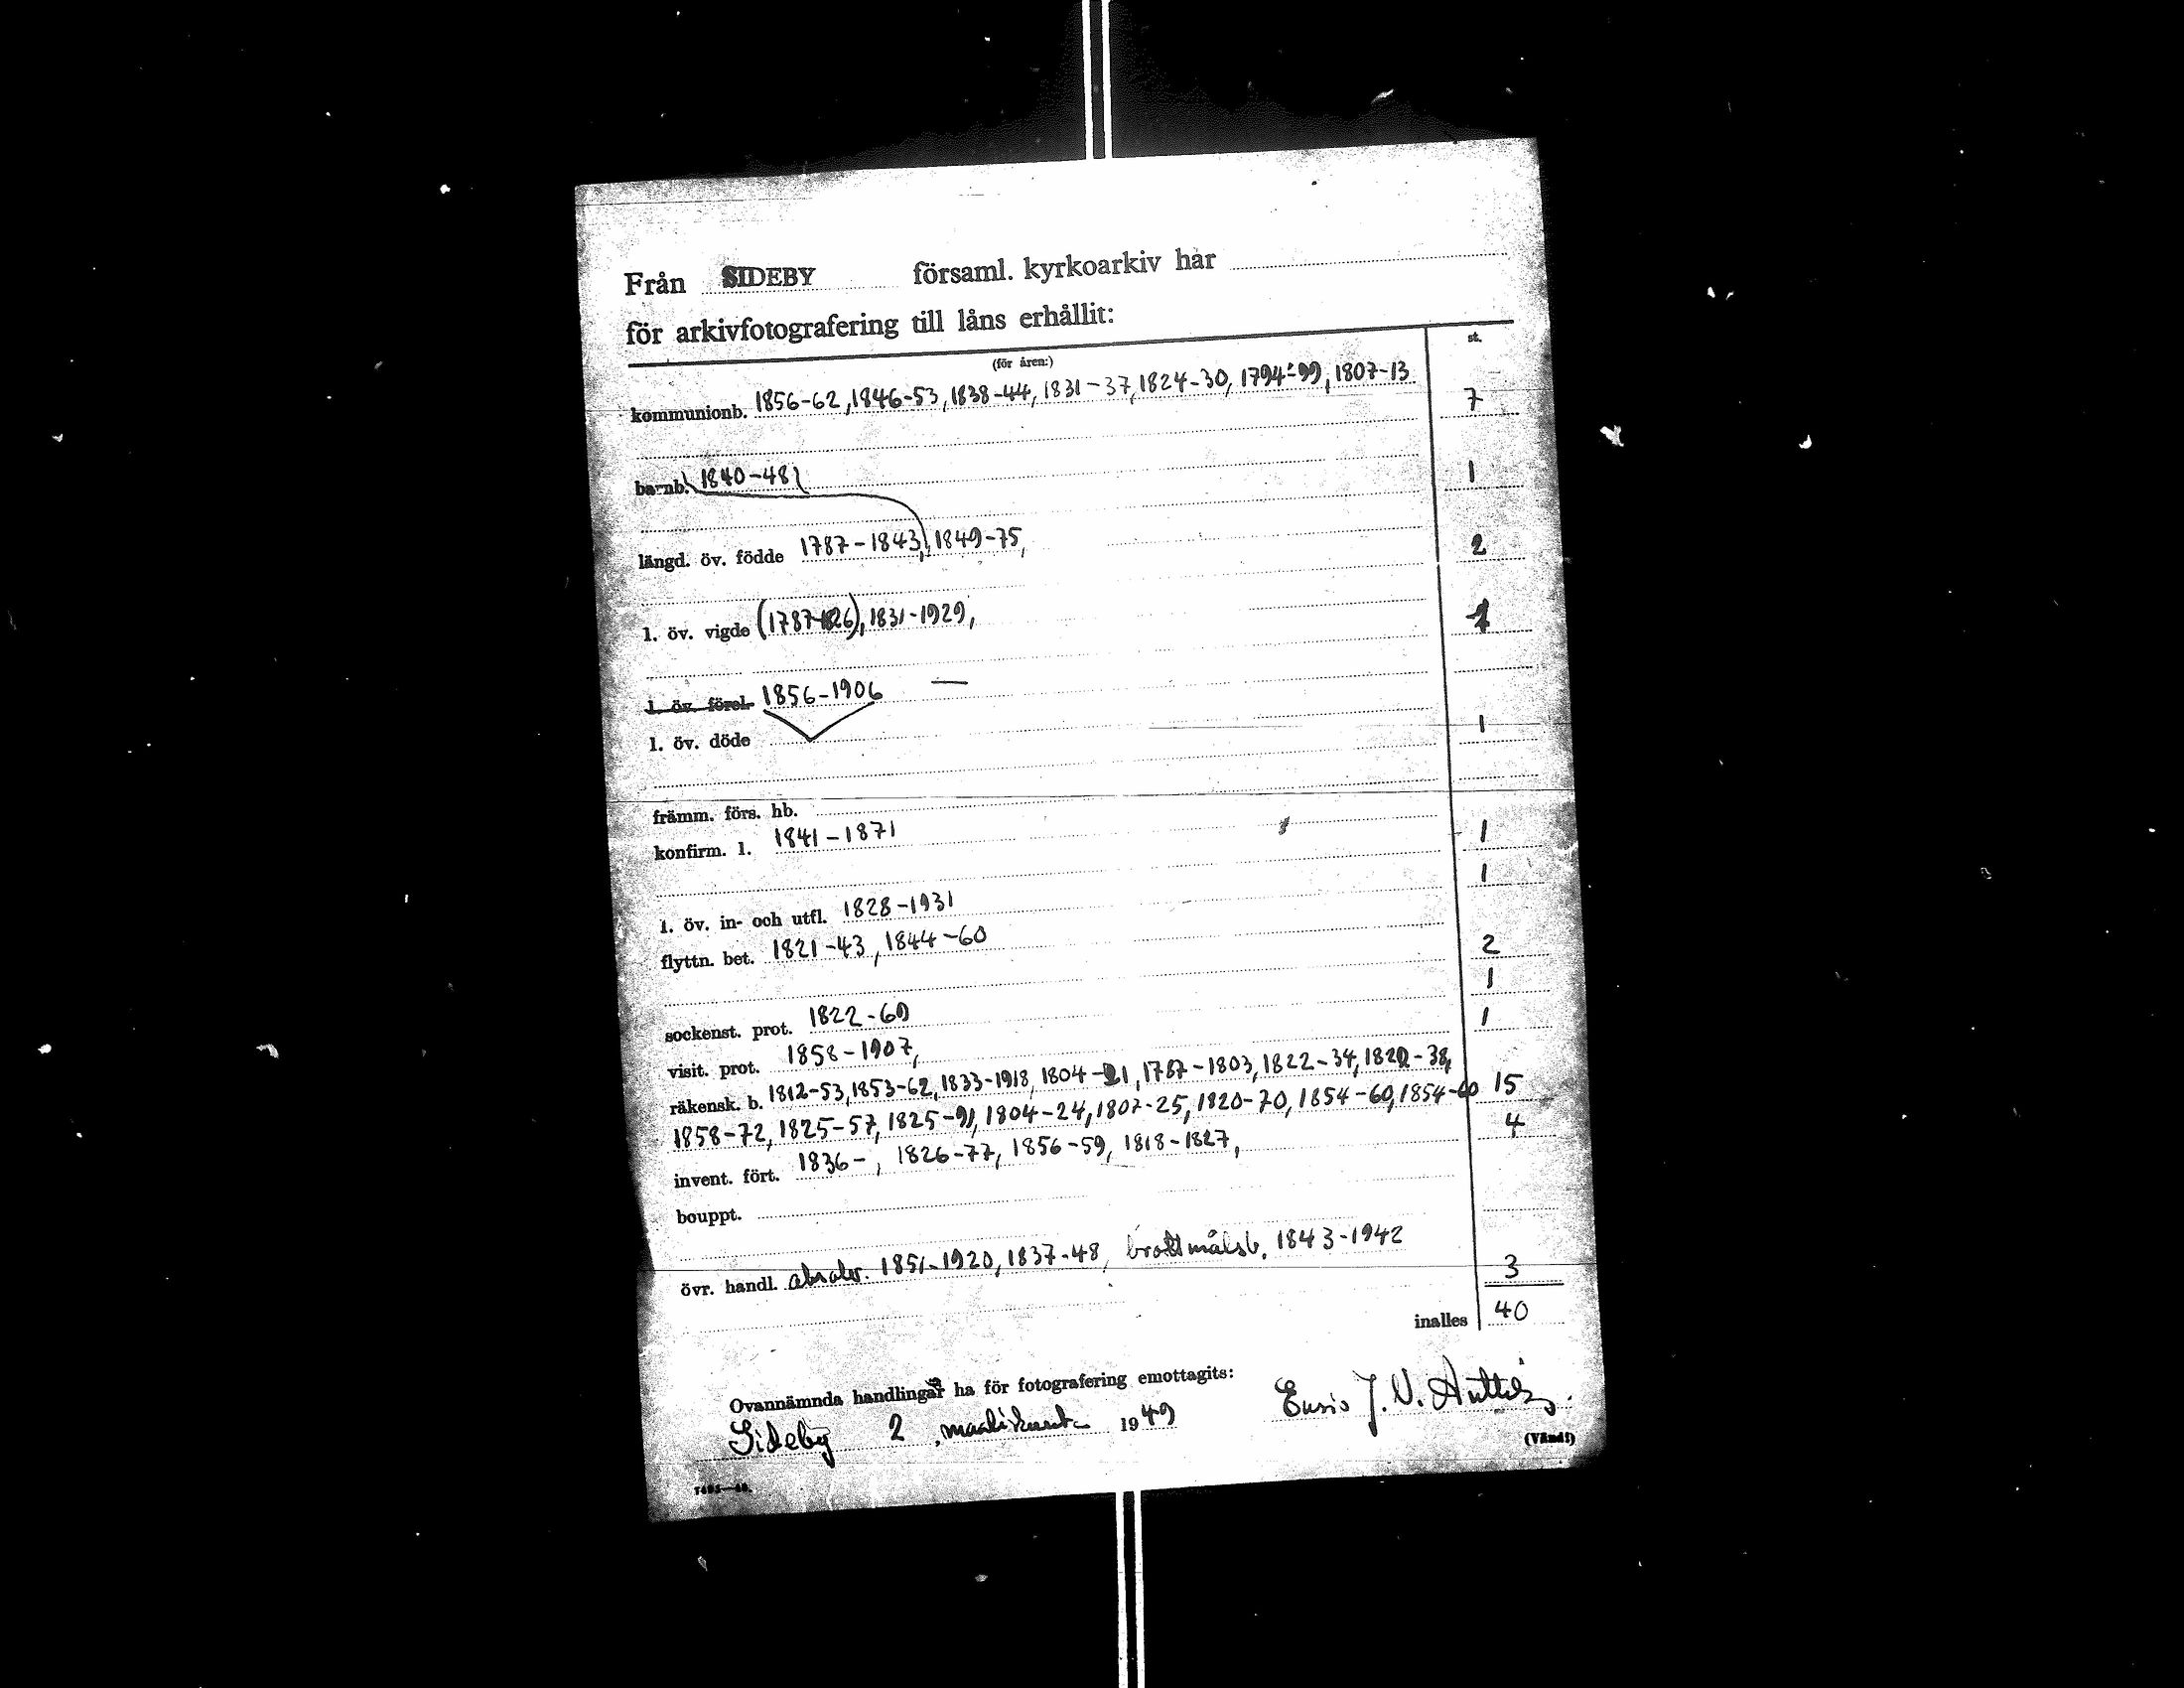 Från SIDEBY församl. kyrkoarkiv har
för arkivfotografering till låns erhållit:
(för åren:) st.
kommunionb. 1856-62, 1846-53, 1838-44, 1831-37, 1824-30, 1794-99, 1807-13 7
barnb. 1840-48 1
längd. öv. födde 1787-1843, 1849-75, 2
l. öv. vigde (1787-1826), 1831-1929, 1
l. öv. förel. 1856-1906 —
l. öv. döde 1
främm. förs. hb.
konfirm. l. 1841-1871 1
l. öv. in- och utfl. 1828-1931 1
flyttn. bet. 1821-43, 1844-60 2
sockenst. prot. 1822-69 1
visit. prot. 1858-1907, 1
räkensk. b. 1812-53, 1853-62, 1833-1918, 1804-21, 1787-1803, 1822-34, 1822-38,
1858-72, 1825-57, 1825-91, 1804-24, 1807-25, 1820-70, 1854-60, 1854-60 15
invent. fört. 1836-, 1826-77, 1856-59, 1818-1827, 4
bouppt.
övr. handl. 1851-1920, 1837-48, brottmålsb. 1843-1942 3
inalles 40
Ovannämnda handlingar ha för fotografering emottagits:
Sideby 2 maaliskuuta 1949 J. V.
(Vänd!)